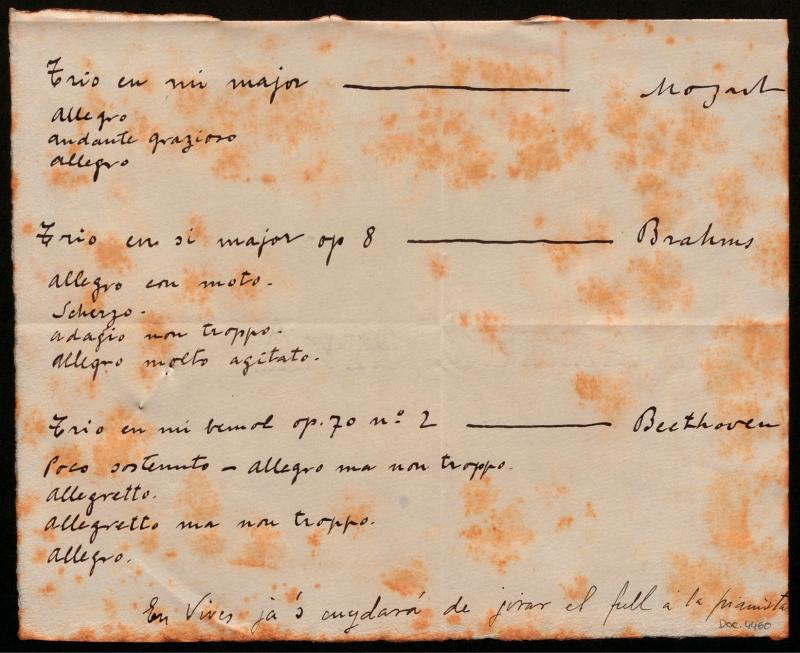 Trio en mi major — Mozart
allegro
andante grazioso
allegro
Trio en si major op 8 — Brahms
allegro con moto.
Scherzo.
adagio non troppo.
allegro molto agitato.
Trio en mi bemol op. 70 nº 2 — Beethoven
Poco sostenuto - allegro ma non troppo.
allegretto.
allegretto ma non troppo.
allegro.
En Vives já's cuydará de jirar el full á la pianista
Doc. 4460